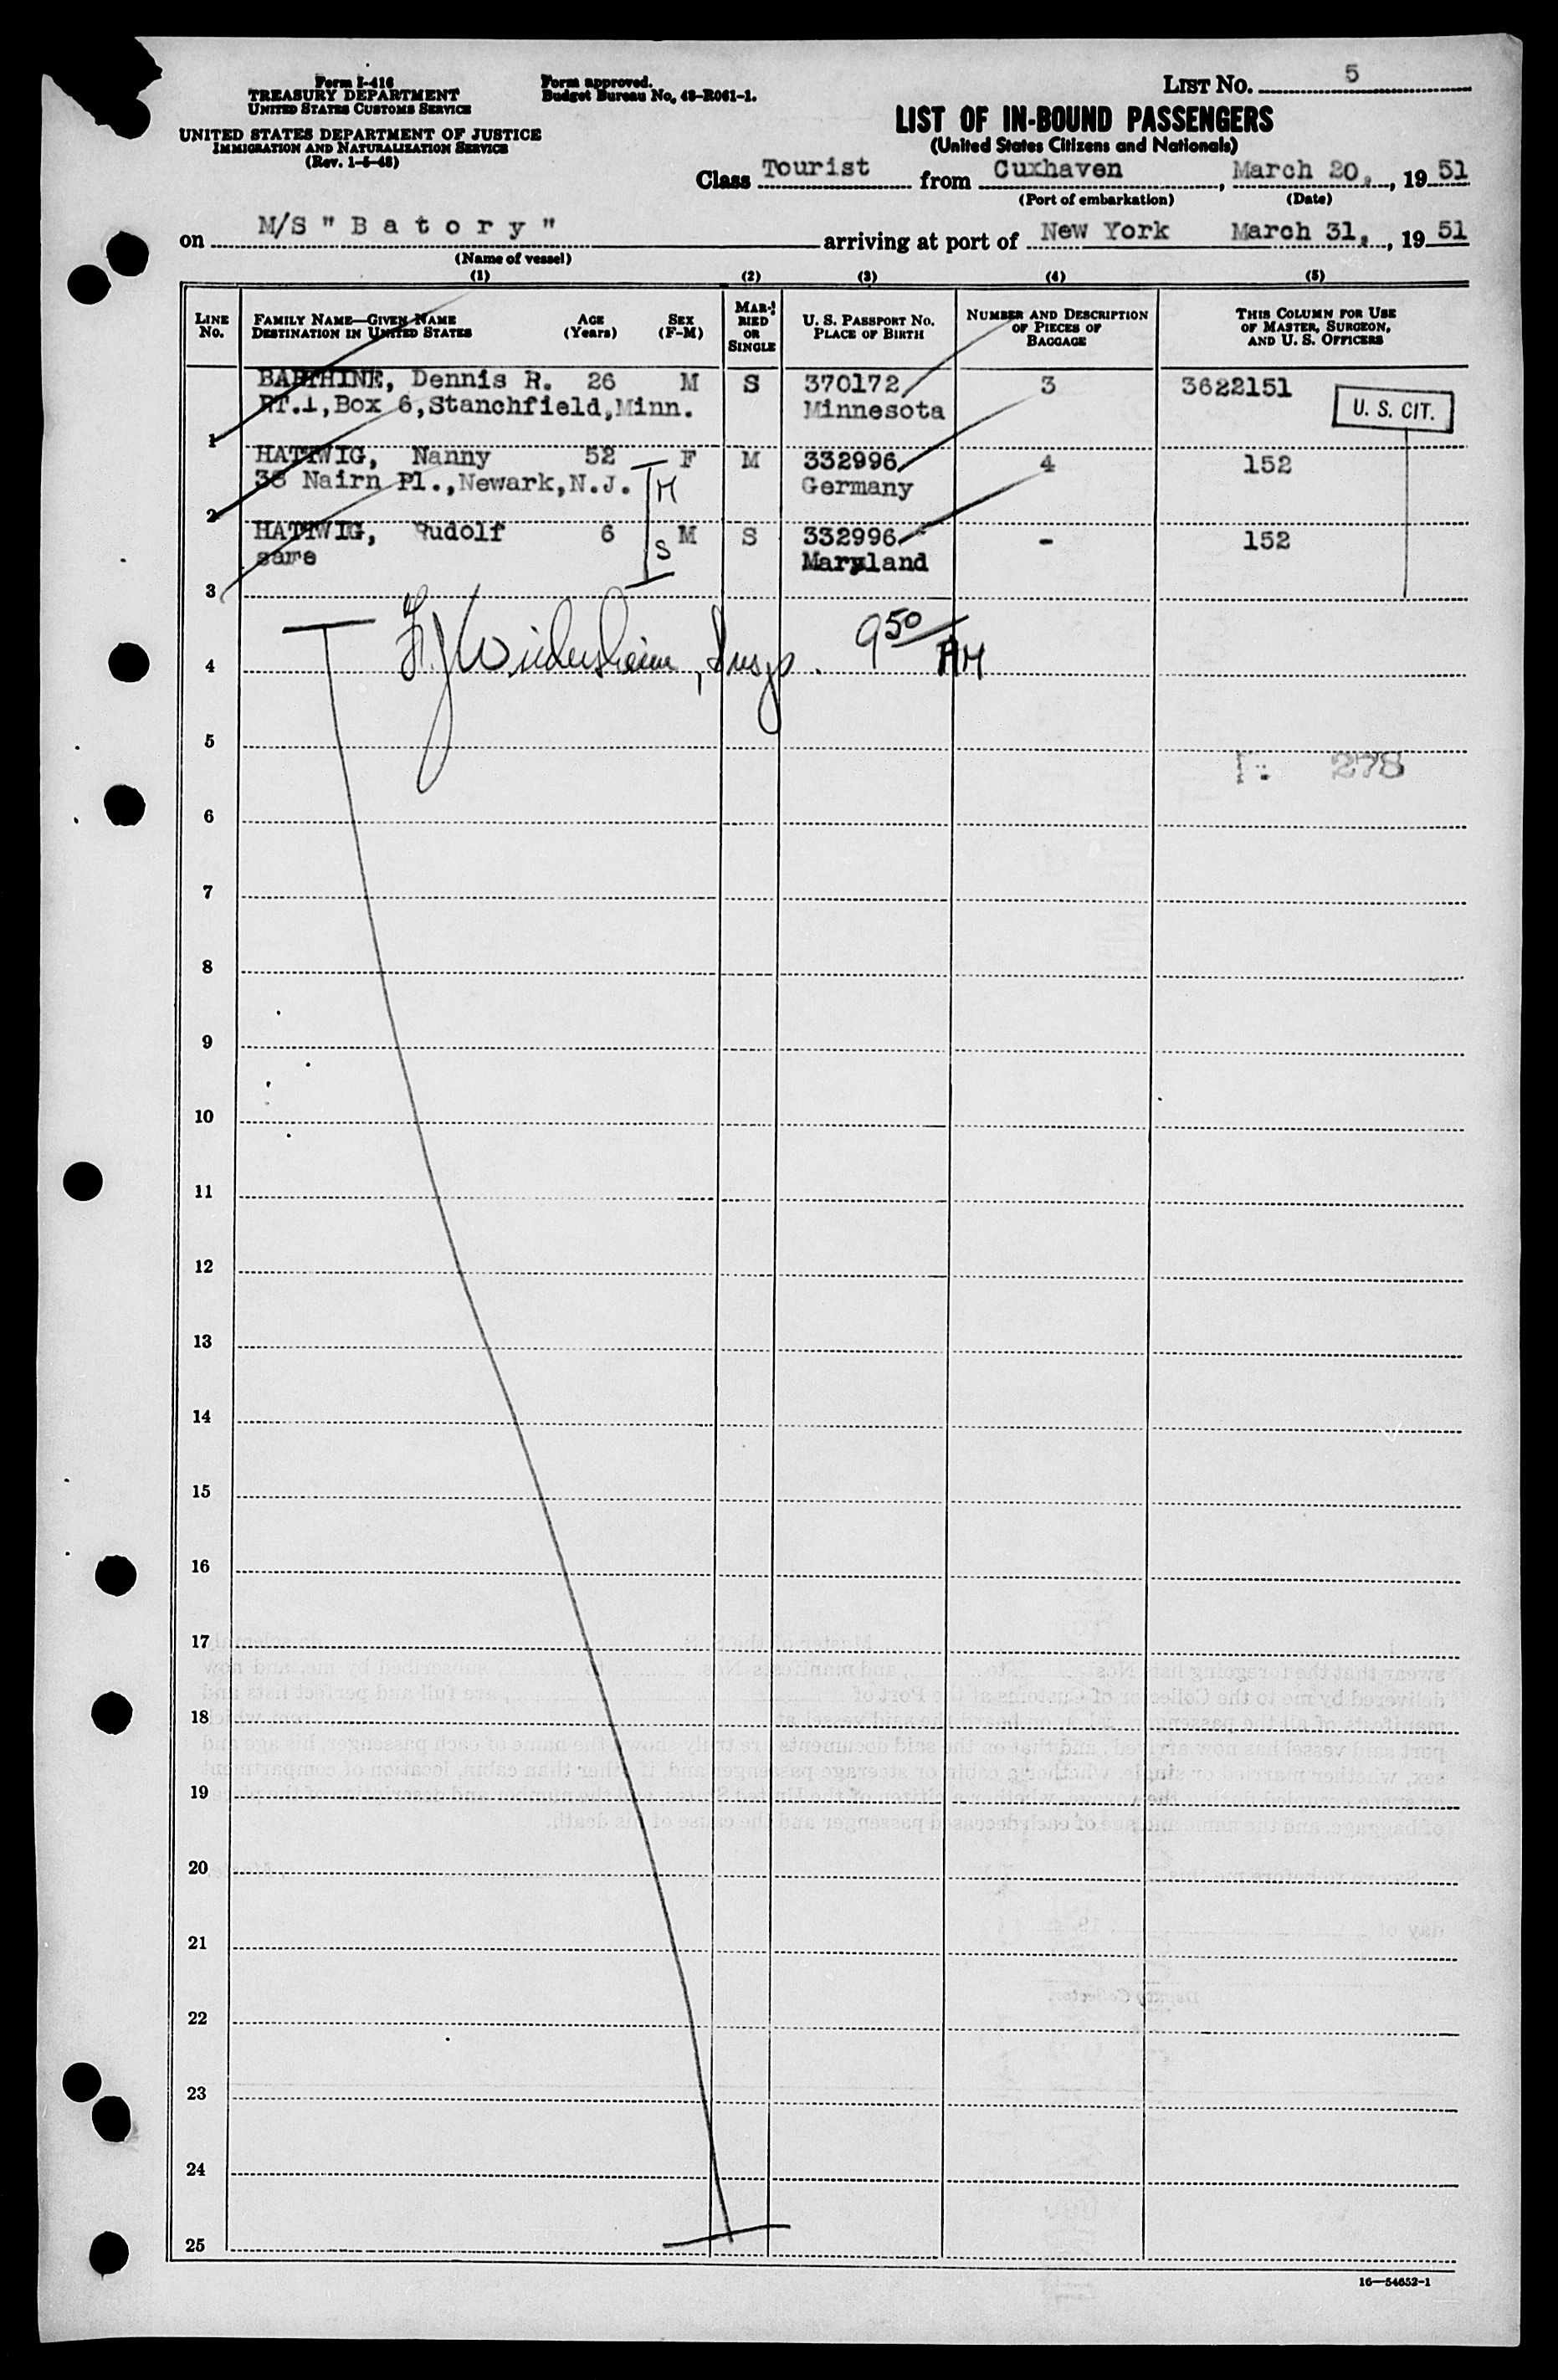 Form I-416
TREASURY DEPARTMENT
UNITED STATES CUSTOMS SERVICE
UNITED STATES DEPARTMENT OF JUSTICE
IMMIGRATION AND NATURALIZATION SERVICE
(Rev. 1-5-48)
Form approved.
Budget Bureau No. 43-R061-1.
LIST No. 5
LIST OF IN-BOUND PASSENGERS
(United States Citizens and Nationals)
Class Tourist from Cuxhaven, March 20, 1951
(Port of embarkation) (Date)
on M/S "Batory" arriving at port of New York March 31, 1951
(Name of vessel)
(1) (2) (3) (4) (5)
LINE No. FAMILY NAME—GIVEN NAME DESTINATION IN UNITED STATES AGE (Years) SEX (F-M) MARRIED OR SINGLE U. S. PASSPORT No. PLACE OF BIRTH NUMBER AND DESCRIPTION OF PIECES OF BAGGAGE THIS COLUMN FOR USE OF MASTER, SURGEON, AND U. S. OFFICERS
BABTHINE, Dennis R. 26 M S 370172 3 3622151
RT.1, Box 6, Stanchfield, Minn. Minnesota U. S. CIT.
1
HATTWIG, Nanny 52 F M 332996 4 152
38 Nairn Pl., Newark, N.J. M Germany
2
HATTWIG, Rudolf 6 M S 332996 - 152
same S Maryland
3
Wiedersheim, Insp. 9 50 AM
4
5
278
6
7
8
9
10
11
12
13
14
15
16
17
18
19
20
21
22
23
24
25
16—54652-1